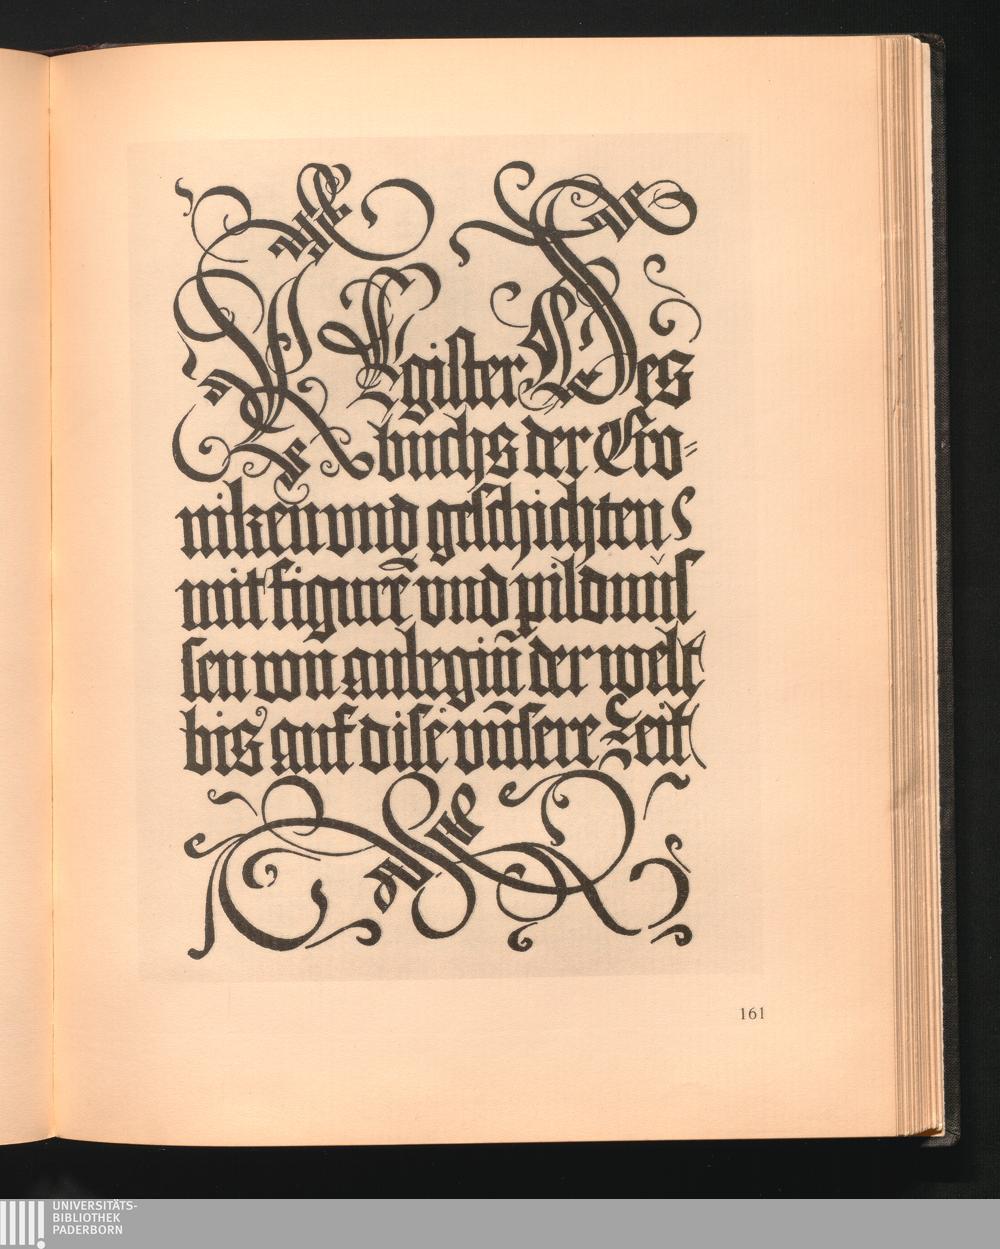 REgister Des
buchs der Cro-
niken vnd geschichten
mit figurē vnd pildnus
sen von anbegiñ der welt
bis auf dise vnsere Zeit
161
UNIVERSITÄTS-
BIBLIOTHEK
PADERBORN